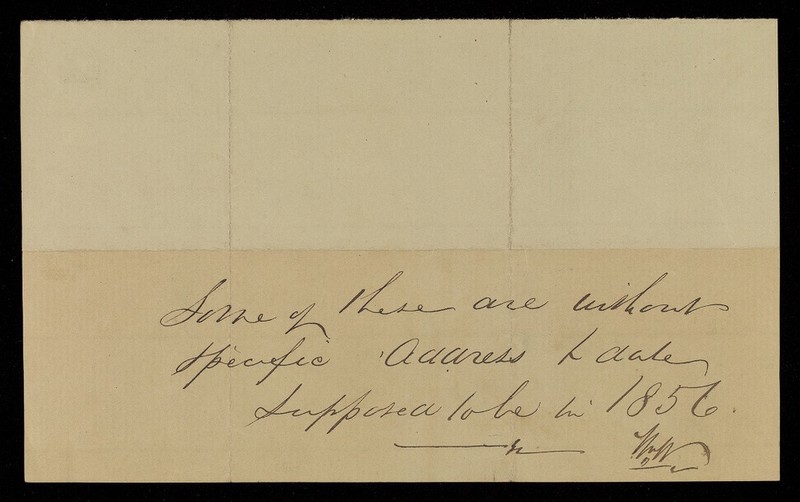 Some of these are without
specific Address & date
supposed to be in 1856.